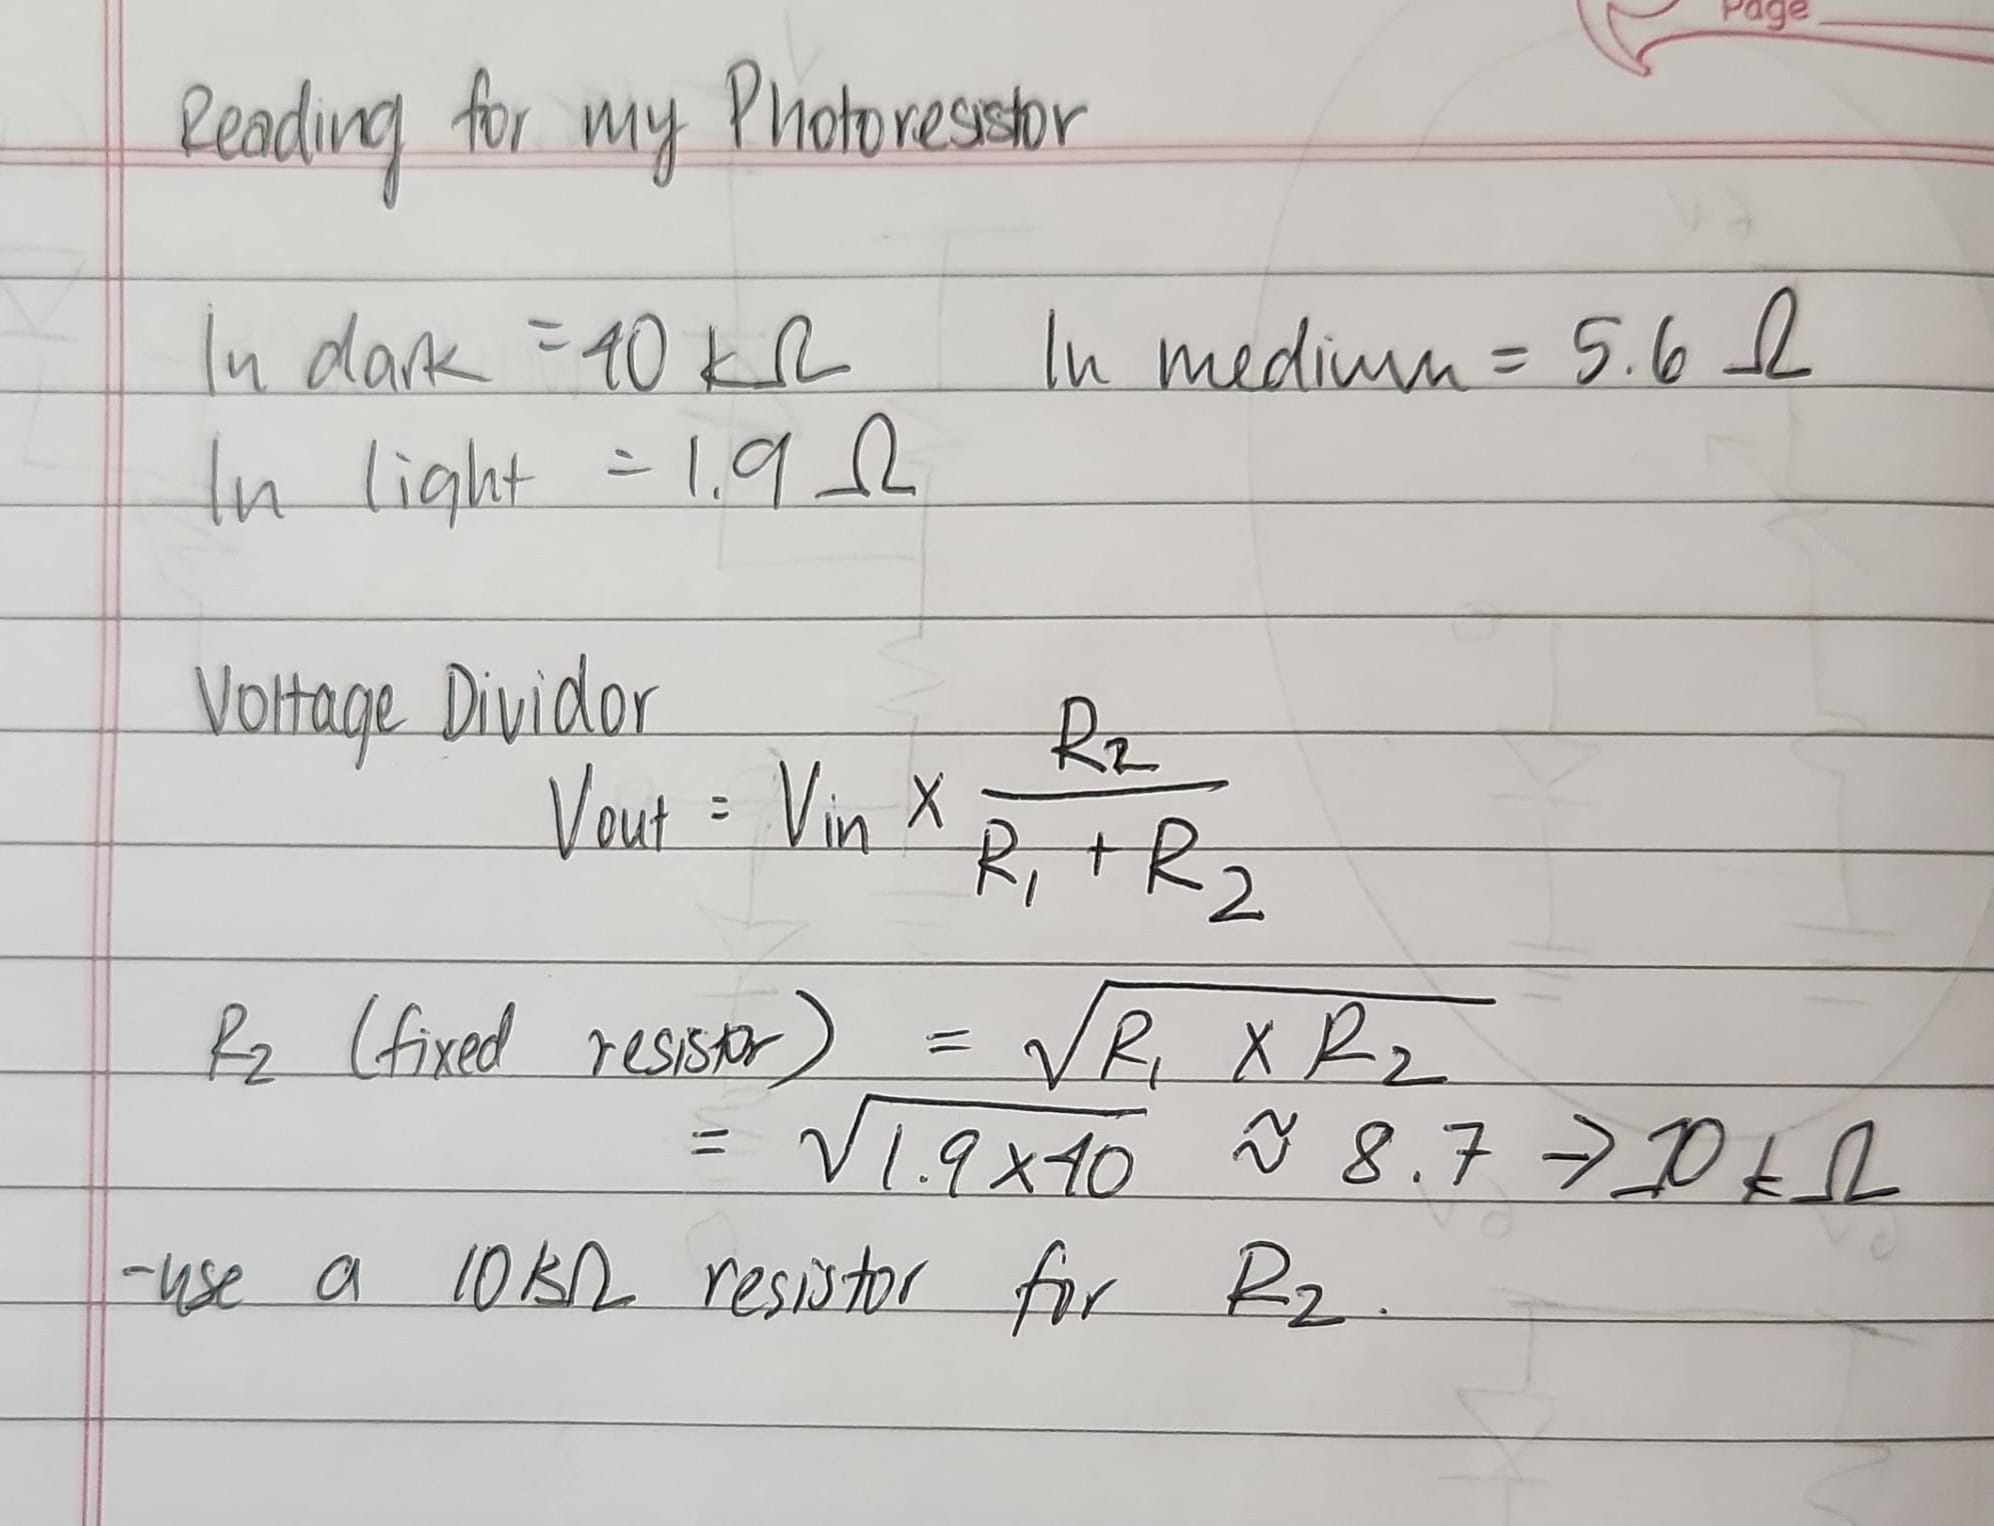 Page
Reading for my Photoresistor
In dark = 40 kΩ In medium = 5.6 Ω
In light = 1.9 Ω
Voltage Dividor
Vout = Vin × R₂ / R₁ + R₂
R₂ (fixed resistor) = √R₁ × R₂
= √1.9×40 ≈ 8.7 → 10 kΩ
-use a 10kΩ resistor for R₂.